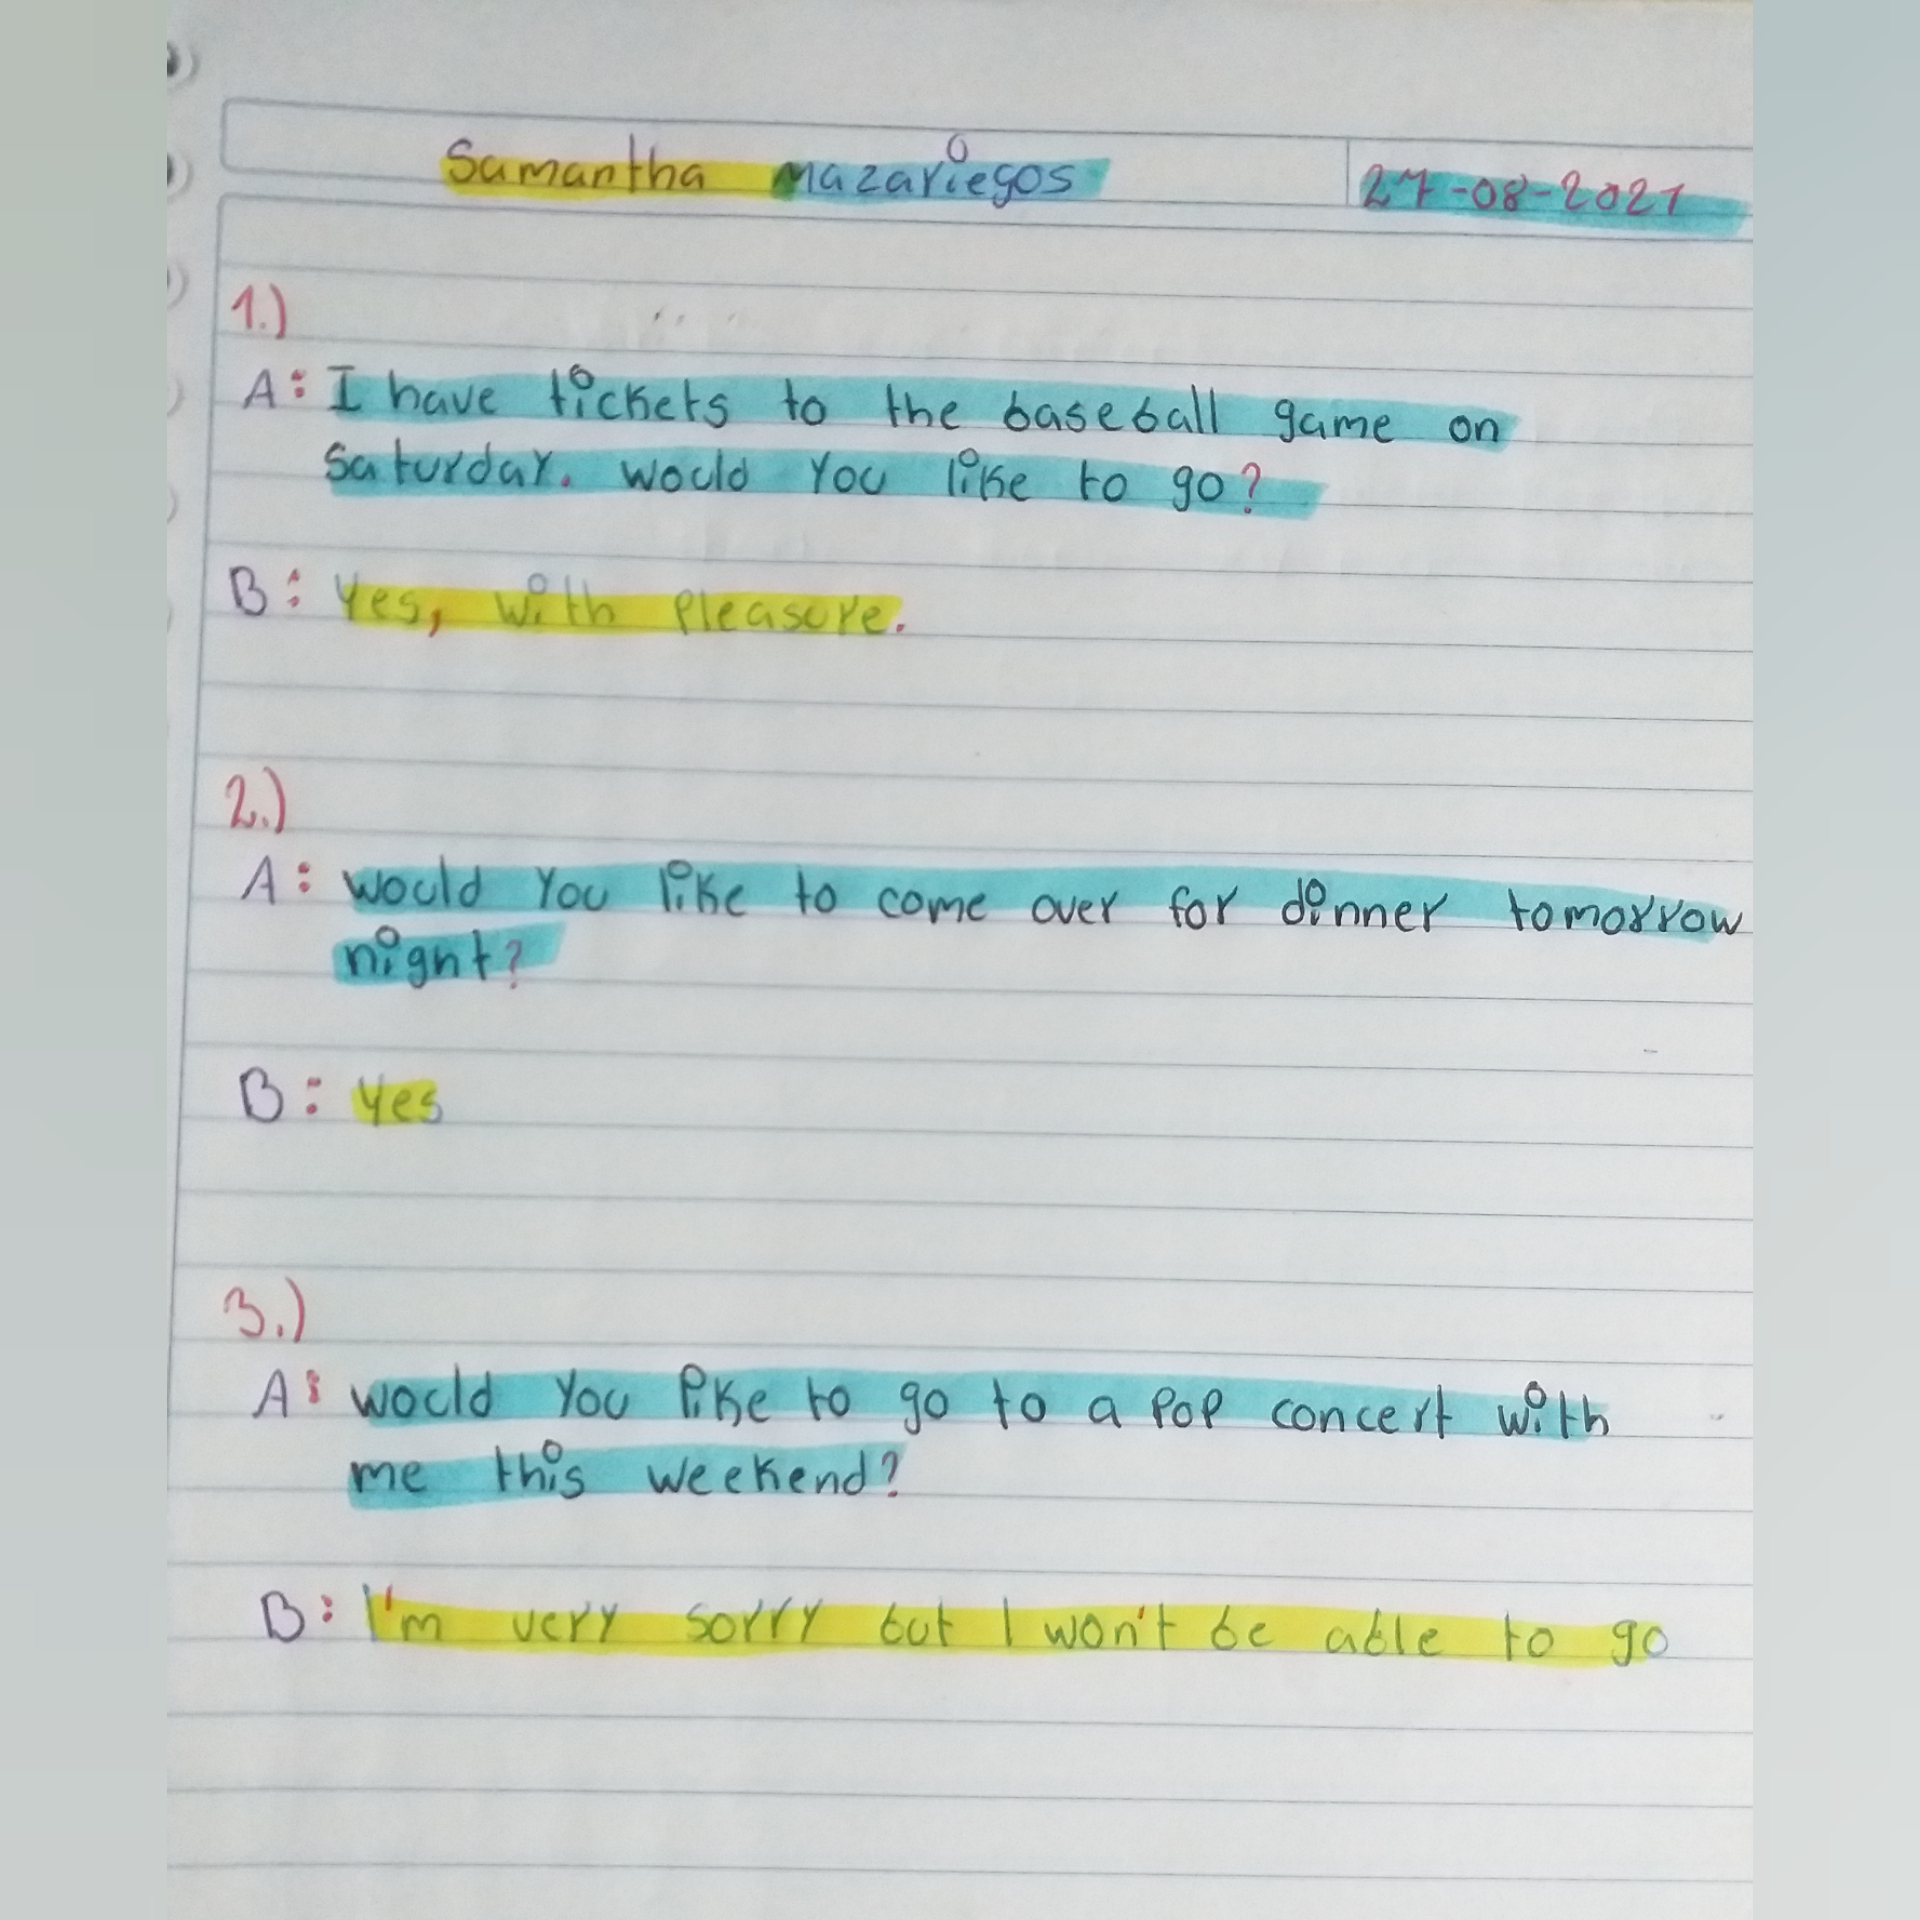 Samantha mazariegos
27-08-2021
1.)
A: I have tickets to the baseball game on
saturday. would you like to go?
B: Yes, with pleasure.
2.)
A: would you like to come over for dinner tomorrow
night?
B: yes
3.)
A: would you like to go to a pop concert with
me this weekend?
B: I'm very sorry but I won't be able to go